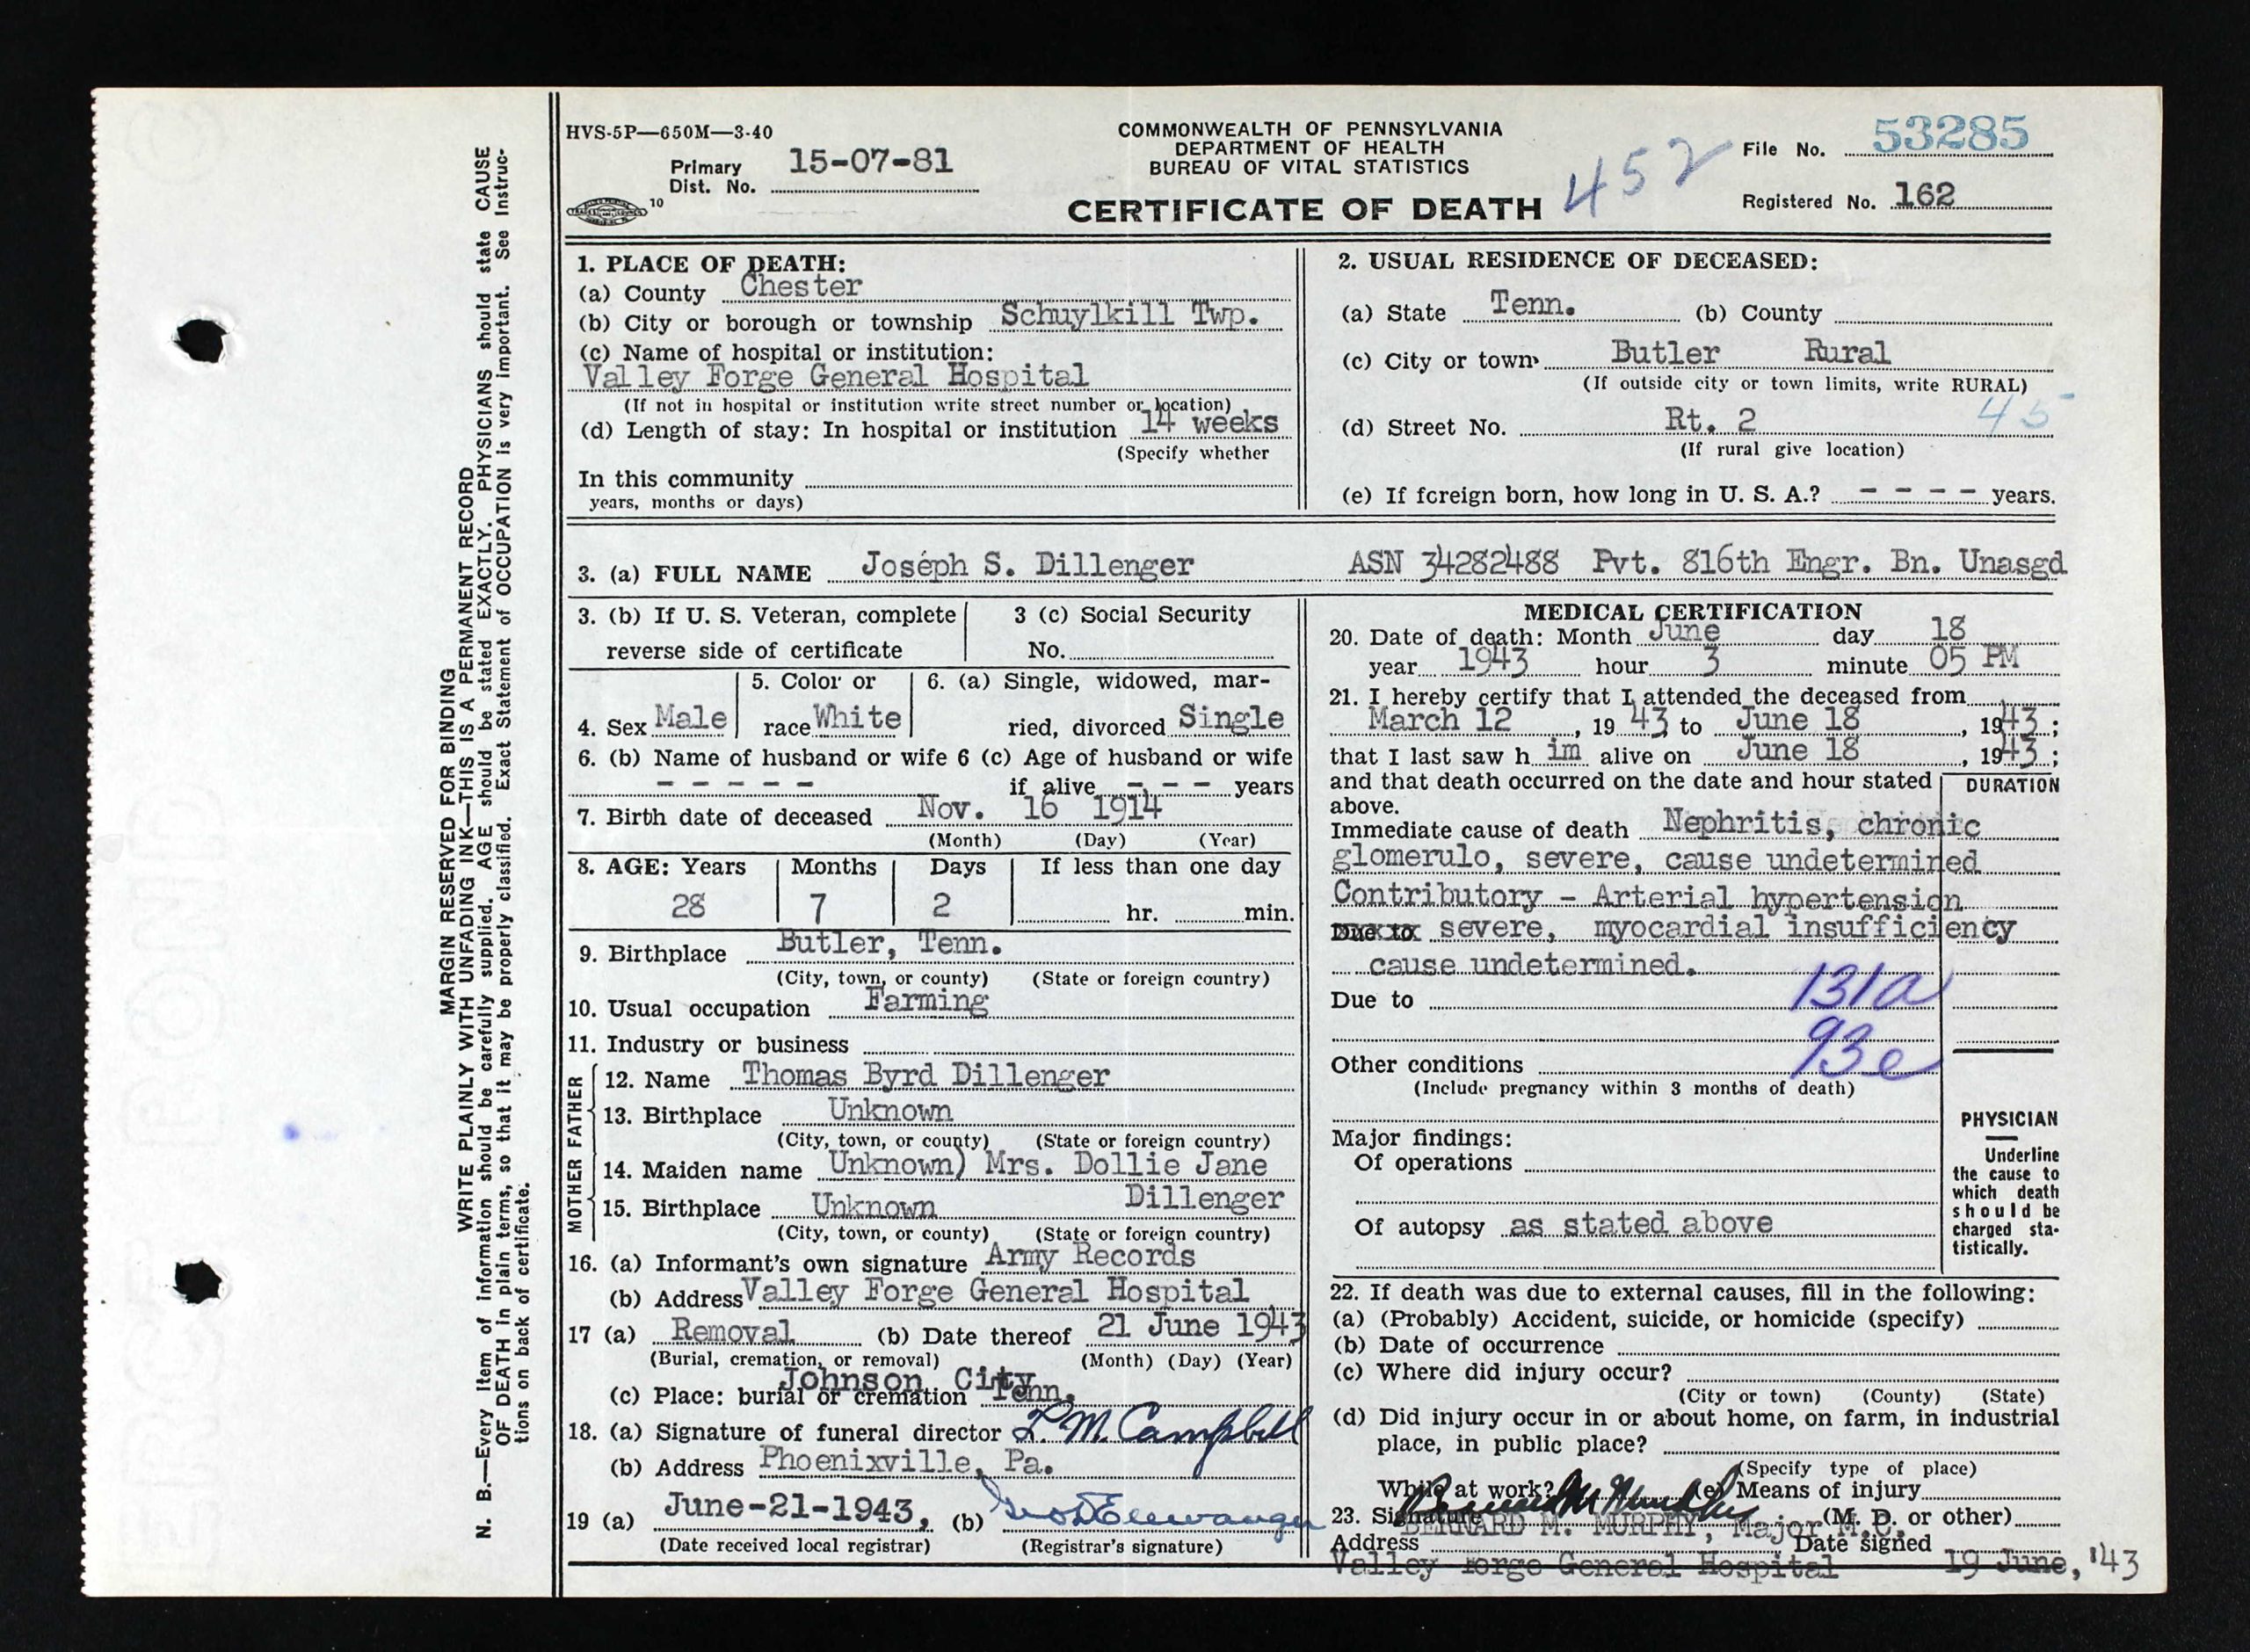 HVS-5P—650M—3-40
Primary
Dist. No. 15-07-81
10
COMMONWEALTH OF PENNSYLVANIA
DEPARTMENT OF HEALTH
BUREAU OF VITAL STATISTICS
CERTIFICATE OF DEATH
452
File No. 53285
Registered No. 162
MARGIN RESERVED FOR BINDING
WRITE PLAINLY WITH UNFADING INK—THIS IS A PERMANENT RECORD
N. B.—Every item of information should be carefully supplied. AGE should be stated EXACTLY. PHYSICIANS should state CAUSE
OF DEATH in plain terms, so that it may be properly classified. Exact Statement of OCCUPATION is very important. See Instruc-
tions on back of certificate.
1. PLACE OF DEATH:
(a) County Chester
(b) City or borough or township Schuylkill Twp.
(c) Name of hospital or institution:
Valley Forge General Hospital
(If not in hospital or institution write street number or location)
(d) Length of stay: In hospital or institution 14 weeks
(Specify whether
In this community
years, months or days)
2. USUAL RESIDENCE OF DECEASED:
(a) State Tenn. (b) County
(c) City or town Butler Rural
(If outside city or town limits, write RURAL)
45
(d) Street No. Rt. 2
(If rural give location)
(e) If foreign born, how long in U. S. A.? - - - - years.
3. (a) FULL NAME Joseph S. Dillenger ASN 34282488 Pvt. 816th Engr. Bn. Unasgd
3. (b) If U. S. Veteran, complete
reverse side of certificate
3 (c) Social Security
No.
4. Sex Male
5. Color or
race White
6. (a) Single, widowed, mar-
ried, divorced Single
6. (b) Name of husband or wife 6 (c) Age of husband or wife
- - - - - if alive - - - years
7. Birth date of deceased Nov. 16 1914
(Month) (Day) (Year)
8. AGE: Years Months Days If less than one day
28 7 2 hr. min.
9. Birthplace Butler, Tenn.
(City, town, or county) (State or foreign country)
10. Usual occupation Farming
11. Industry or business
FATHER
12. Name Thomas Byrd Dillenger
13. Birthplace Unknown
(City, town, or county) (State or foreign country)
MOTHER
14. Maiden name Unknown) Mrs. Dollie Jane
Dillenger
15. Birthplace Unknown
(City, town, or county) (State or foreign country)
16. (a) Informant's own signature Army Records
(b) Address Valley Forge General Hospital
17 (a) Removal (b) Date thereof 21 June 1943
(Burial, cremation, or removal) (Month) (Day) (Year)
(c) Place: burial or cremation Johnson City
Tenn.
18. (a) Signature of funeral director L. M. Campbell
(b) Address Phoenixville, Pa.
19 (a) June-21-1943, (b)
(Date received local registrar) (Registrar's signature)
MEDICAL CERTIFICATION
20. Date of death: Month June day 18
year 1943 hour 3 minute 05 PM
21. I hereby certify that I attended the deceased from
March 12, 19 43 to June 18, 1943;
that I last saw h im alive on June 18, 1943;
and that death occurred on the date and hour stated
above.
DURATION
Immediate cause of death Nephritis, chronic
glomerulo, severe, cause undetermined
Contributory - Arterial hypertension
Due to severe, myocardial insufficiency
cause undetermined.
131a
Due to
93e
Other conditions
(Include pregnancy within 3 months of death)
Major findings:
Of operations
Of autopsy as stated above
PHYSICIAN
Underline
the cause to
which death
should be
charged sta-
tistically.
22. If death was due to external causes, fill in the following:
(a) (Probably) Accident, suicide, or homicide (specify)
(b) Date of occurrence
(c) Where did injury occur?
(City or town) (County) (State)
(d) Did injury occur in or about home, on farm, in industrial
place, in public place?
(Specify type of place)
While at work? (e) Means of injury
23. Signature Bernard M Murphy (M. D. or other)
BERNARD M. MURPHY, Major M.C.
Address Date signed
Valley Forge General Hospital 19 June, '43